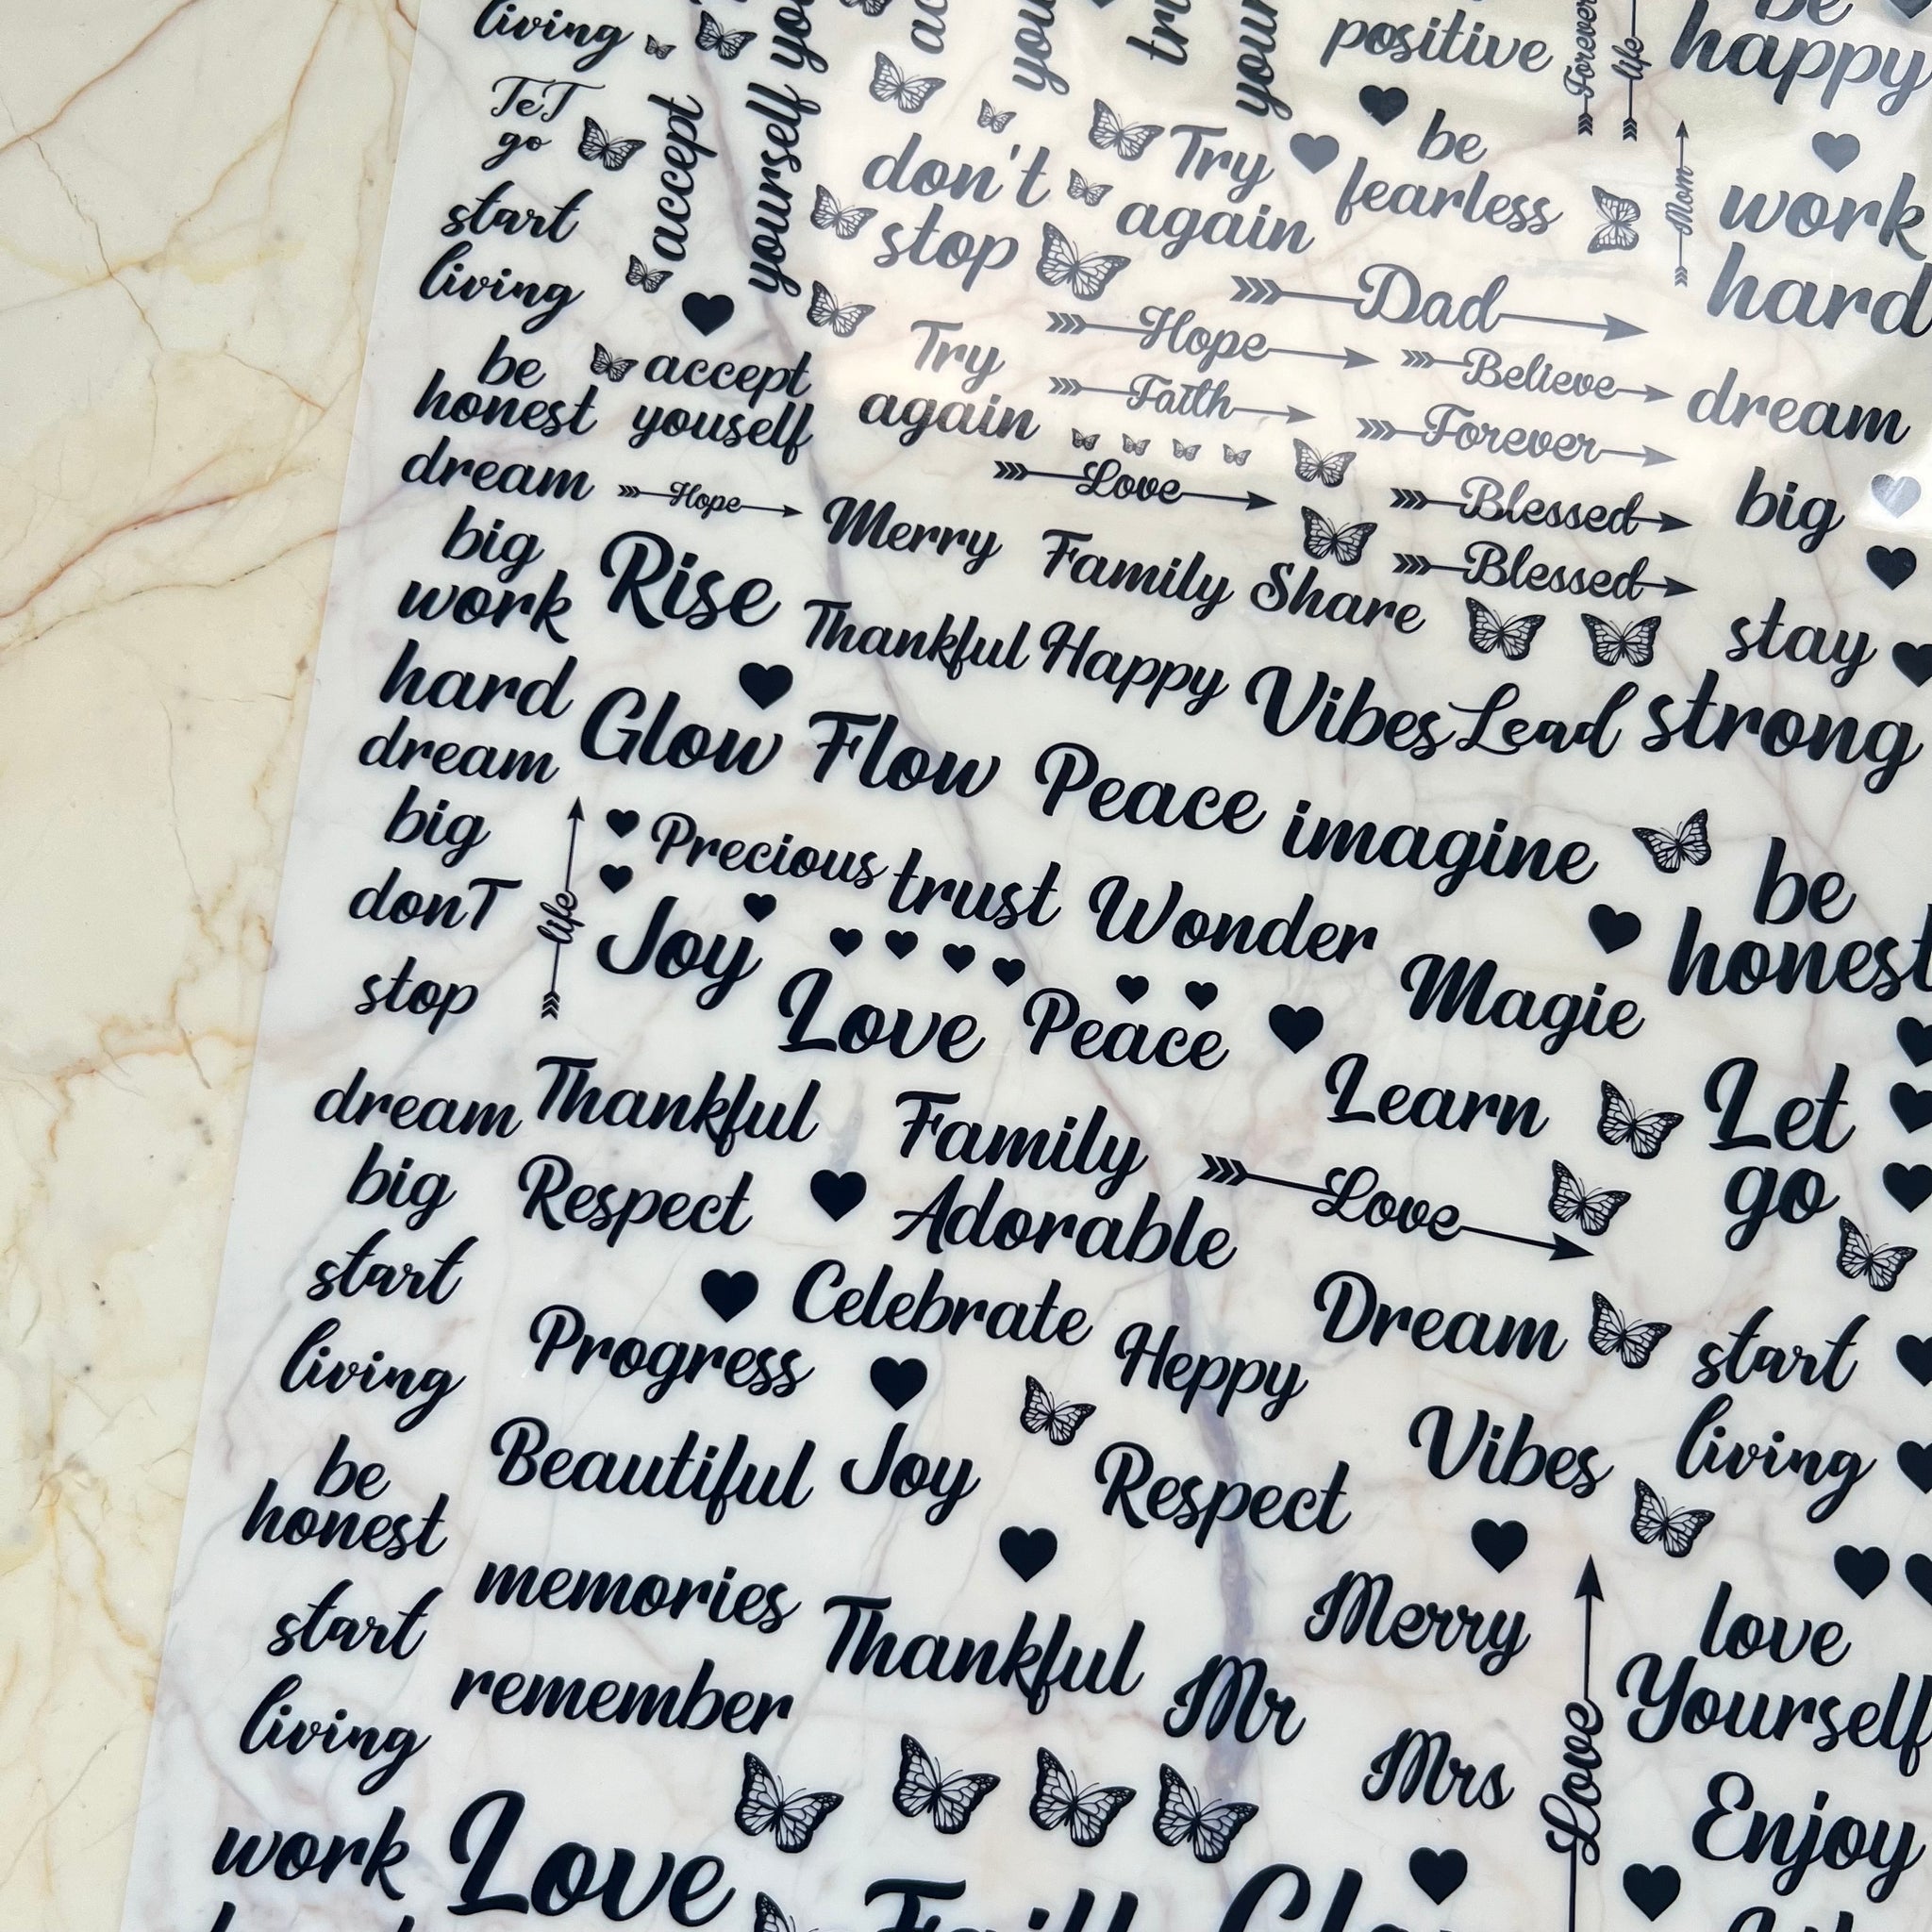 living
TeT
go
start
living
be
honest
dream
big
work
hard
dream
big
donT
stop
dream
big
start
living
be
honest
start
living
work
accept
yourself
accept
youself
Hope
positive
Forever
life
be
happy
don't
stop
Try
again
be
fearless
Mom
work
hard
Dad
Hope
Believe
Try
again
Faith
Forever
dream
big
Love
Blessed
Blessed
Merry
Family
Share
Rise
Thankful
Happy
Vibes
Lead
stay
strong
Glow
Flow
Peace
imagine
be
honest
life
Precious
trust
Wonder
Magie
Joy
Love
Peace
Learn
Let
go
Thankful
Family
Love
Respect
Adorable
Dream
start
living
Celebrate
Progress
Heppy
Vibes
Beautiful
Joy
Respect
memories
Thankful
Merry
love
Yourself
remember
Mr
Mrs
Love
Enjoy
Love